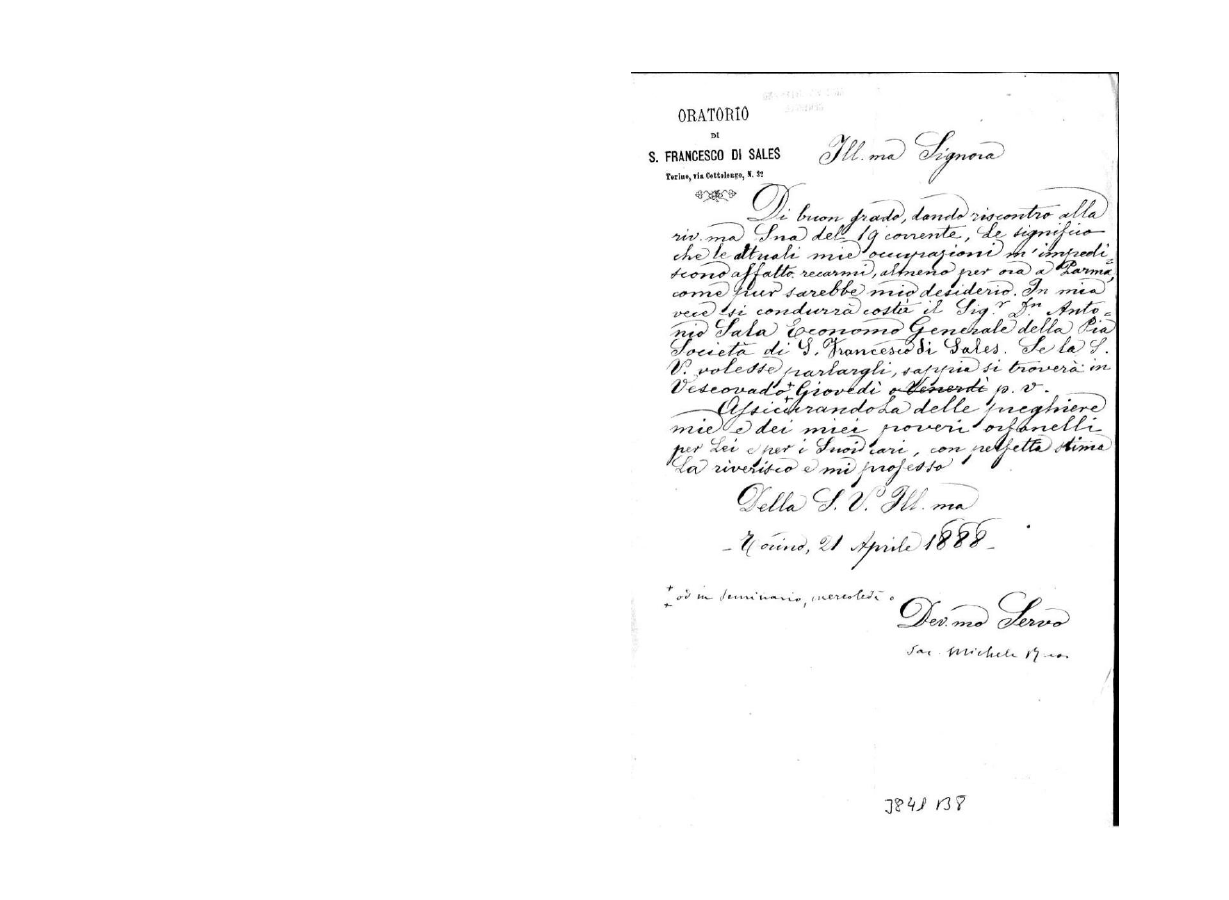 ORATORIO
DI
S. FRANCESCO DI SALES
Torino, via Cottolengo, N. 32
Ill.ma Signora
Di buon grado, dando riscontro alla
riv.ma Sua del 19 corrente, Le significo
che le attuali mie occupazioni m'impedi=
scono affatto recarmi, almeno per ora a Parma,
come pur sarebbe mio desiderio. In mia
vece si condurrà costà il Sig.r Dn Anto=
nio Sala Economo Generale della Pia
Società di S. Francesco di Sales. Se la S.
V. volesse parlargli, sappia si troverà in
Vescovado + Giovedì o Venerdì p. v.
AssicurandoLa delle preghiere
mie e dei miei poveri orfanelli
per Lei e per i Suoi cari, con perfetta stima
La riverisco e mi professo
Della S. V. Ill.ma
- Torino, 21 Aprile 1888 -
+ od in Seminario, mercoledì o
Dev.mo Servo
Sac. Michele Rua